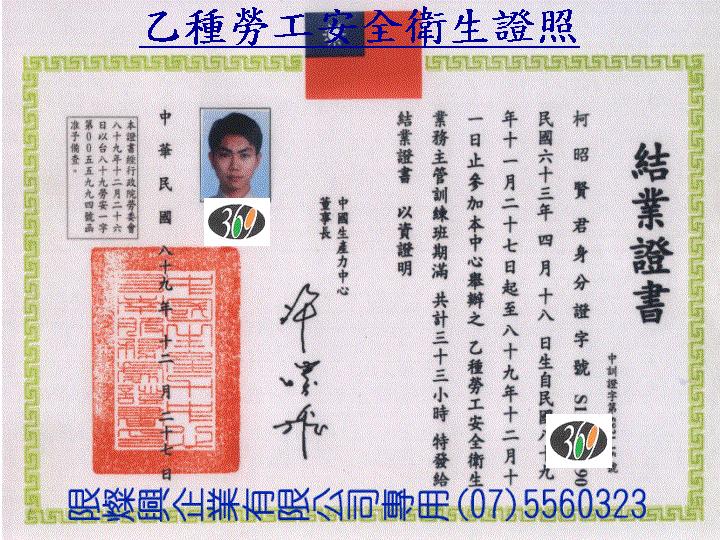 乙種勞工安全衛生證照
結業證書
中訓證字第
柯昭賢君身分證字號S1 90
民國六十三年四月十八日生自民國八十九
年十一月二十七日起至八十九年十二月十
一日止參加本中心舉辦之乙種勞工安全衛生
業務主管訓練班期滿 共計三十三小時 特發給
結業證書 以資證明
中國生產力中心
董事長
中華民國八十九年十二月二十七日
本證書經行政院勞委會
八十九年十二月二十六
日以台八十九勞安一字
第00五五九九四號函
准予備查。
369
369
限燦興企業有限公司專用(07)5560323